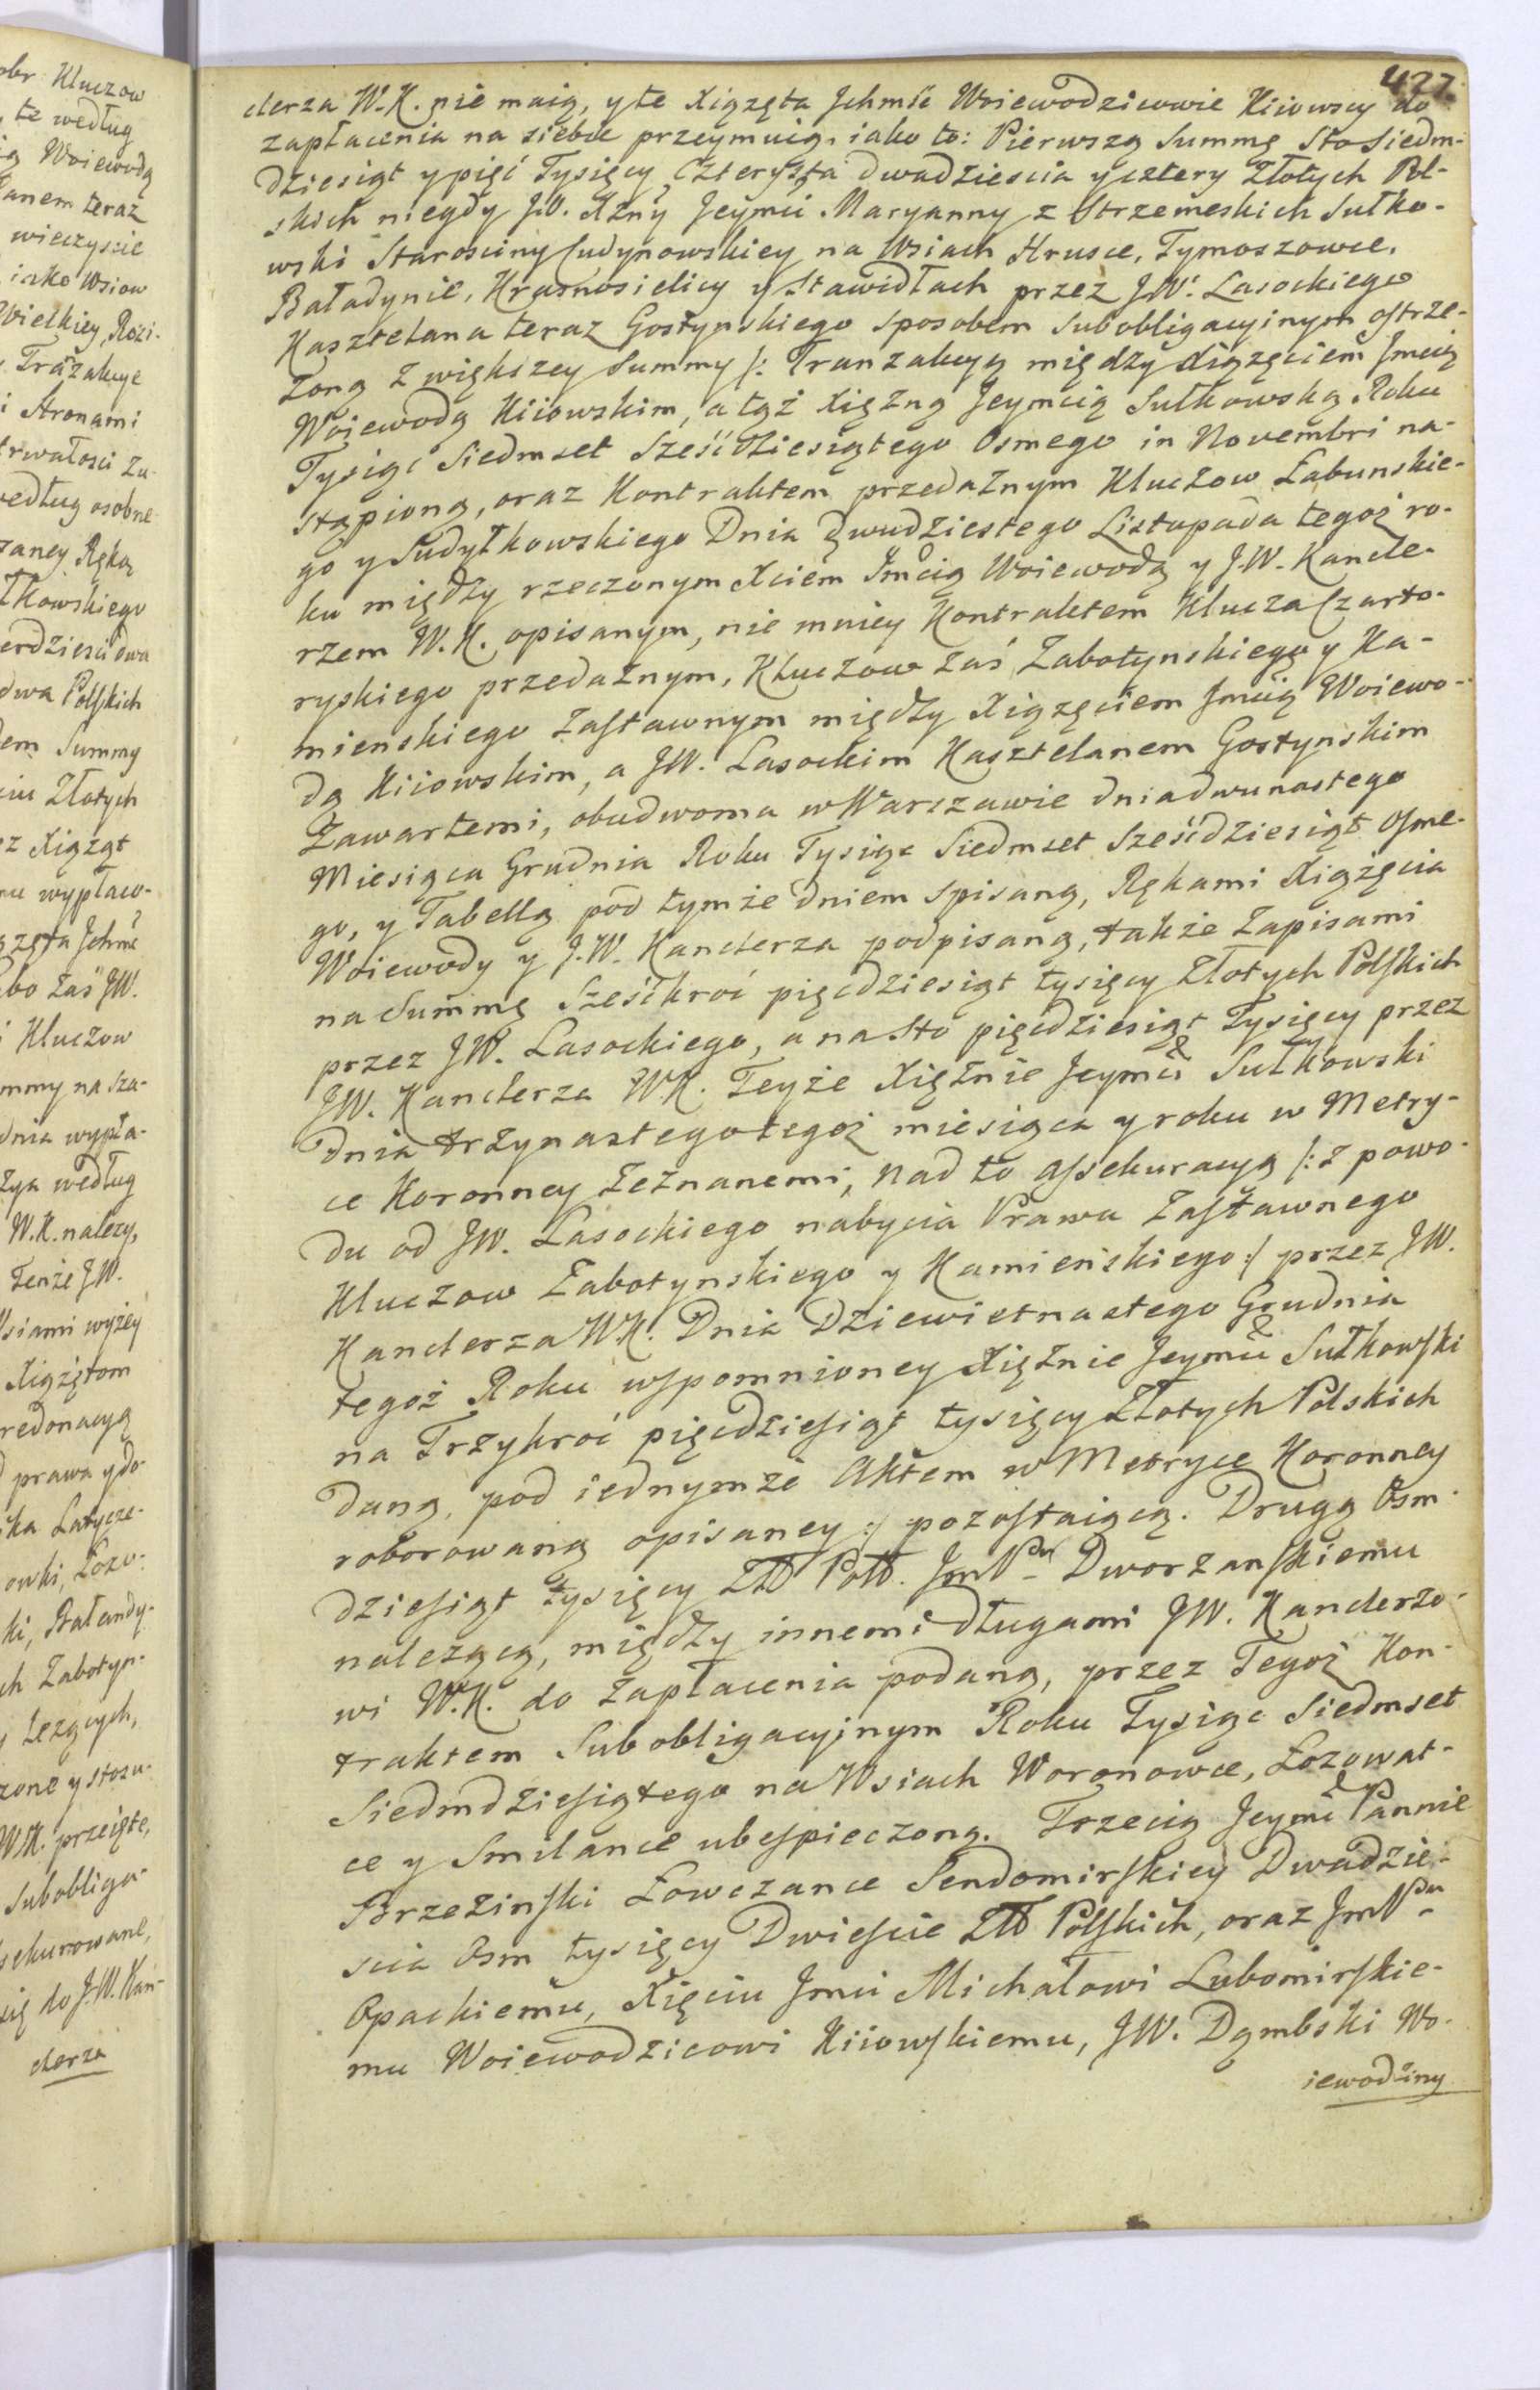 427
clerza W.K. nie maią, y te Xiązęta Jchmśc Woiewodzicowie Kiiowscy do
zapłacenia na siebie przeymuią, iako to: Pierwszą Summę Sto Siedm-
dziesiąt y pięć Tysięcy Czterysta dwadziescia y cztery Złotych Pol-
skich niegdy J.O. Xżny Jeymci Maryanny z Strzemeskich Sułko-
wski Starosciny Cudynowskiey na Wsiach Hrusce, Tymoszowce,
Baładynie, Krasnosielicy y Stawidłach przez JW. Lasockiego
Kasztelana teraz Gostynskiego sposobem subobligacyinym ostrze-
żoną z większey Summy /: Tranzakcyą między Xiązęciem Jmcią
Woiewodą Kiiowskim, a tąż Xiężną Jeymcią Sułkowską Roku
Tysiąc Siedmset Sześćdziesiątego Osmego in Novembri na-
stąpioną, oraz Kontraktem przedażnym Kluczow Łabunskie-
go y Sudyłkowskiego Dnia dwudziestego Listopada tegoż ro-
ku między rzeczonym Xciem Jmcią Woiewodą y J.W. Kancle-
rzem W.K. opisanym, nie mniey Kontraktem Klucza Czarto-
ryskiego przedażnym, Kluczow zaś Żabotynskiego y Ka-
mienskiego Zastawnym między Xiązęciem Jmcią Woiewo-
dą Kiiowskim, a JW. Lasockim Kasztelanem Gostynskim
Zawartemi, obudwoma w Warszawie dnia dwunastego
Miesiąca Grudnia Roku Tysiąc Siedmset Sześćdziesiąt Osme-
go, y Tabellą pod tymże dniem spisaną, Rękami Xiążęcia
Woiewody y J.W. Kanclerza podpisaną, także Zapisami
na Summę Sześćkroć pięćdziesiąt tysięcy Złotych Polskich
przez JW. Lasockiego, a na Sto pięćdziesiąt Tysięcy przez
JW. Kanclerza W.K. Teyże Xiężnie Jeymci Sułkowski
Dnia trzynastego tegoż miesiąca y roku w Metry-
ce Koronney Zeznanemi, nad to assekuracyą /: z powo-
du od JW. Lasockiego nabycia Prawa Zastawnego
Kluczow Żabotynskiego y Kamieńskiego :/ przez JW.
Kanclerza W.K. Dnia Dziewietnastego Grudnia
tegoż Roku wspomnioney Xiężnie Jeymci Sułkowski
na Trzykroć pięćdziesiąt tysięcy Złotych Polskich
daną, pod iednymże Aktem w Metryce Koronney
roborowaną opisaney :/ pozostaiącą. Drugą Osm-
dziesiąt tysięcy Złł Poll. JmP. Dworzanskiemu
należącą, między innemi długami JW. Kanclerzo-
wi W.K. do Zapłacenia podaną, przez Tegoż Kon-
traktem Subobligacyjnym Roku Tysiąc Siedmset
Siedmdziesiątego na Wsiach Woronowce, Łozowat-
ce y Smilance ubespieczoną. Trzecią Jeymci Pannie
Brzezinski Łowczance Sendomirskiey Dwadzie-
scia Osm tysięcy Dwieście Złł Polskich, oraz JmP.
Opackiemu, Xięciu Jmci Michałowi Lubomirskie-
mu Woiewodzicowi Kiiowskiemu, JW. Dąmbski Wo-
iewodziny